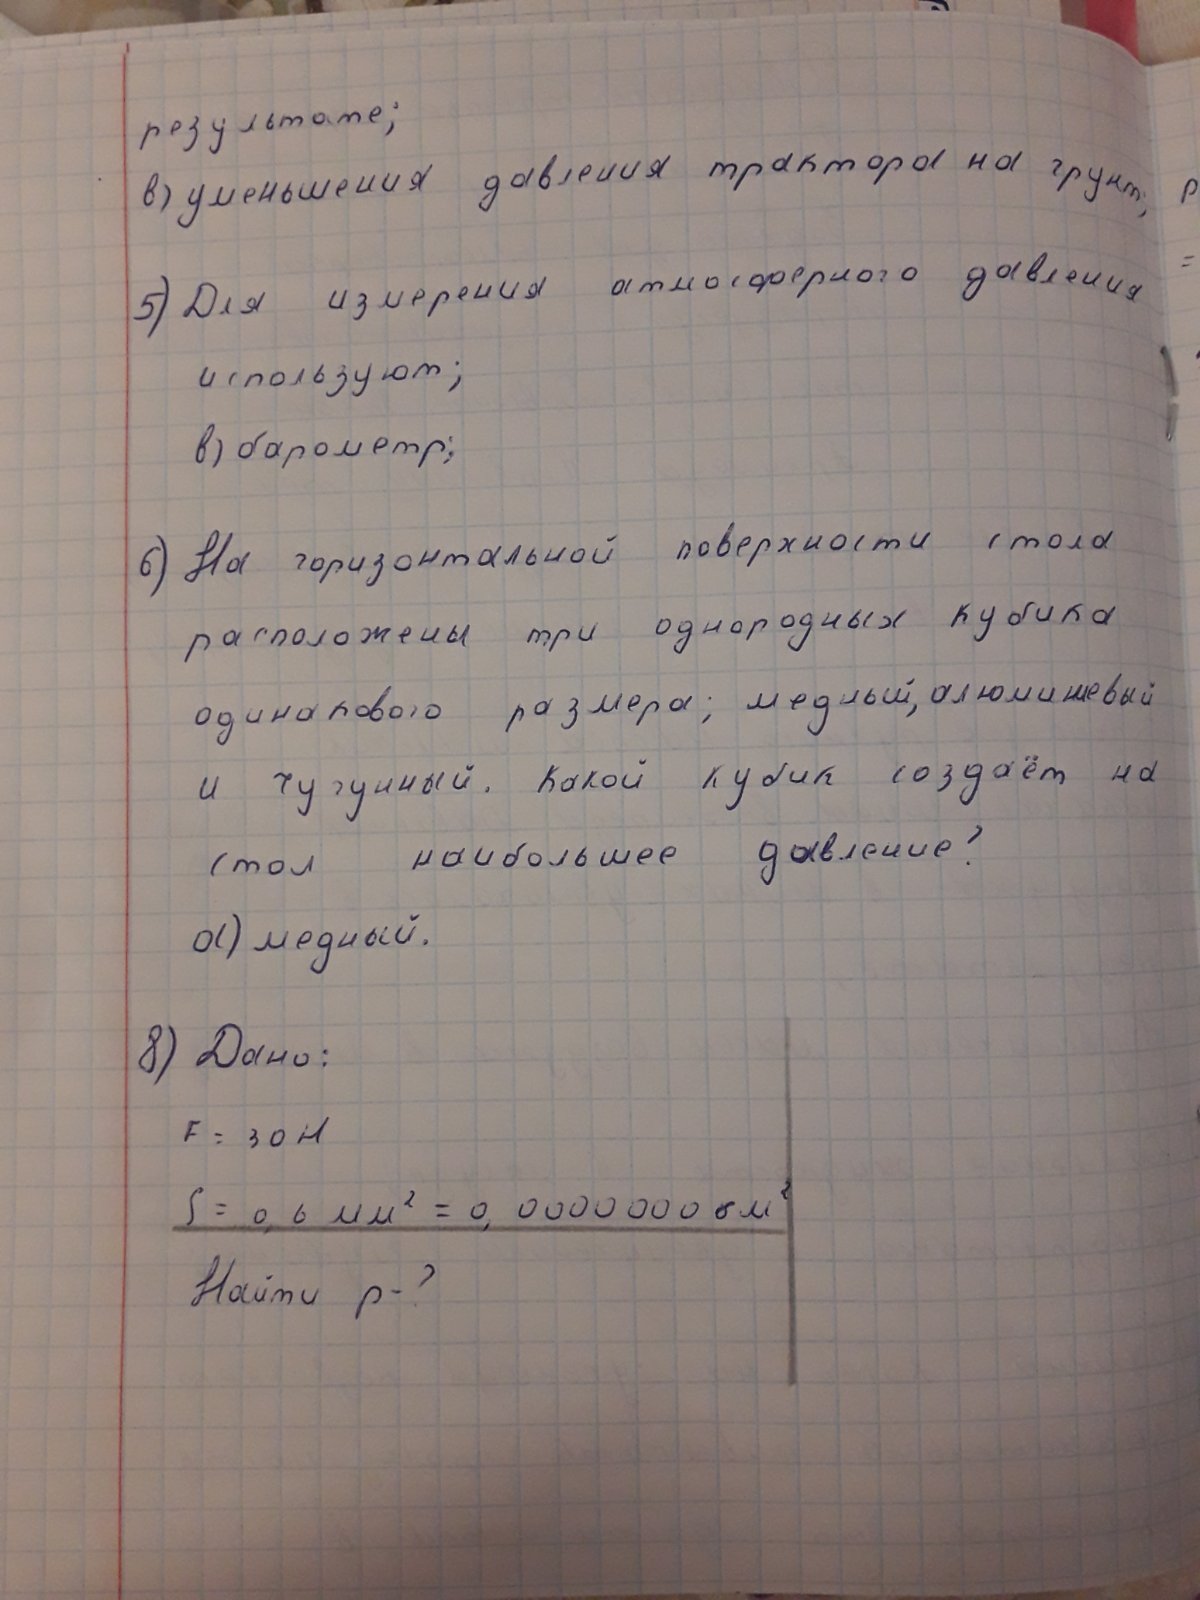 результате;
в) уменьшения давления трактора на грунт;
5) Для измерения атмосферного давления
используют;
в) барометр;
6) На горизонтальной поверхности стола
расположены три однородных кубика
одинакового размера; медный, алюминиевый
и чугунный. Какой кубик создаёт на
стол наибольшее давление?
а) медный.
8) Дано:
F = 30 Н
S = 0,6 мм² = 0,00000006 м²
Найти p-?